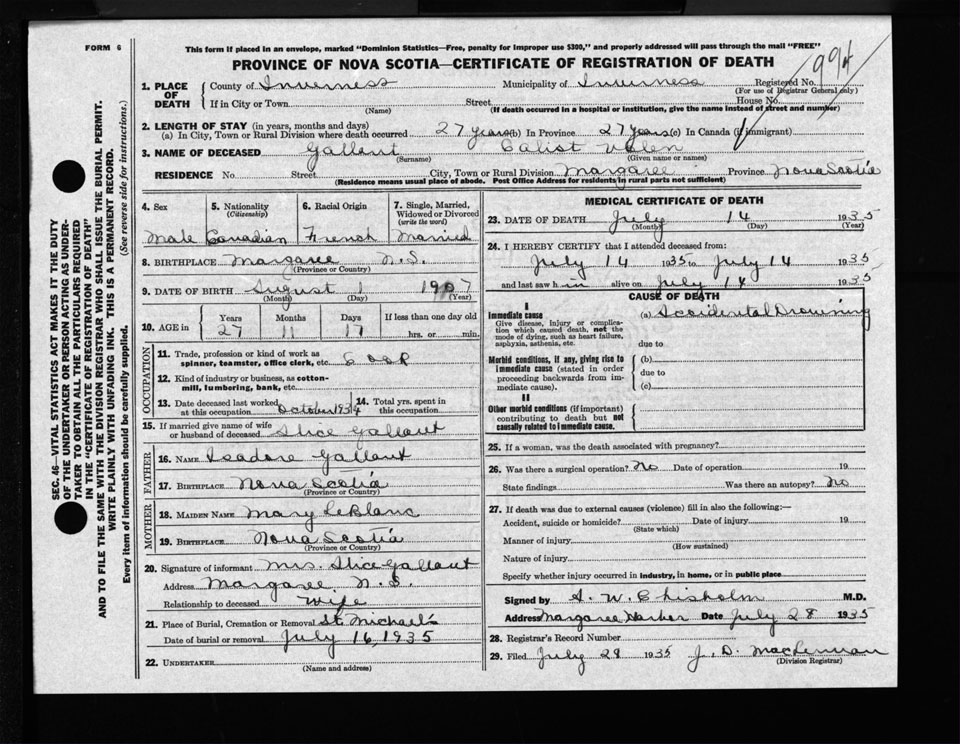 FORM 6
This form if placed in an envelope, marked "Dominion Statistics—Free, penalty for improper use $300," and properly addressed will pass through the mail "FREE"
PROVINCE OF NOVA SCOTIA—CERTIFICATE OF REGISTRATION OF DEATH
994
1. PLACE OF DEATH County of Inverness Municipality of Inverness Registered No.
(For use of Registrar General only)
If in City or Town Street House No.
(Name) (If death occurred in a hospital or institution, give the name instead of street and number)
2. LENGTH OF STAY (in years, months and days)
(a) In City, Town or Rural Division where death occurred 27 years (b) In Province 27 years (c) In Canada (if immigrant)
3. NAME OF DECEASED Gallant Calist
(Surname) (Given name or names)
RESIDENCE No. Street City, Town or Rural Division Margaree Province Nova Scotia
(Residence means usual place of abode. Post Office Address for residents in rural parts not sufficient)
4. Sex 5. Nationality (Citizenship) 6. Racial Origin 7. Single, Married, Widowed or Divorced (write the word)
Male Canadian French Married
8. BIRTHPLACE Margaree N.S.
(Province or Country)
9. DATE OF BIRTH August 1 1907
(Month) (Day) (Year)
10. AGE in Years Months Days If less than one day old
27 11 17 hrs. or min.
OCCUPATION
11. Trade, profession or kind of work as spinner, teamster, office clerk, etc.
12. Kind of industry or business, as cotton-mill, lumbering, bank, etc.
13. Date deceased last worked at this occupation October 1934 14. Total yrs. spent in this occupation
15. If married give name of wife or husband of deceased Alice Gallant
FATHER
16. NAME Isadore Gallant
17. BIRTHPLACE Nova Scotia
(Province or Country)
MOTHER
18. MAIDEN NAME Mary LeBlanc
19. BIRTHPLACE Nova Scotia
(Province or Country)
20. Signature of informant Mrs. Alice Gallant
Address Margaree N.S.
Relationship to deceased Wife
21. Place of Burial, Cremation or Removal St. Michael's
Date of burial or removal July 16, 1935
22. UNDERTAKER
(Name and address)
MEDICAL CERTIFICATE OF DEATH
23. DATE OF DEATH July 14 1935
(Month) (Day) (Year)
24. I HEREBY CERTIFY that I attended deceased from:
July 14 1935 to July 14 1935
and last saw him alive on July 14 1935
CAUSE OF DEATH
I
Immediate cause (a) Accidental Drowning
Give disease, injury or complication which caused death, not the mode of dying, such as heart failure, asphyxia, asthenia, etc.
due to
Morbid conditions, if any, giving rise to immediate cause (stated in order proceeding backwards from immediate cause). (b)
due to
(c)
II
Other morbid conditions (if important) contributing to death but not causally related to immediate cause.
25. If a woman, was the death associated with pregnancy?
26. Was there a surgical operation? No Date of operation 19
State findings Was there an autopsy? No
27. If death was due to external causes (violence) fill in also the following:—
Accident, suicide or homicide? Date of injury 19
(State which)
Manner of injury
(How sustained)
Nature of injury
Specify whether injury occurred in industry, in home, or in public place
Signed by A. W. Chisholm M.D.
Address Margaree Harbor Date July 28 1935
28. Registrar's Record Number
29. Filed July 29 1935 J. D. MacLennan
(Division Registrar)
SEC. 46—VITAL STATISTICS ACT MAKES IT THE DUTY
OF THE UNDERTAKER OR PERSON ACTING AS UNDER-
TAKER TO OBTAIN ALL THE PARTICULARS REQUIRED
IN THE "CERTIFICATE OF REGISTRATION OF DEATH"
AND TO FILE THE SAME WITH THE DIVISION REGISTRAR WHO SHALL ISSUE THE BURIAL PERMIT.
WRITE PLAINLY WITH UNFADING INK. THIS IS A PERMANENT RECORD.
Every item of information should be carefully supplied. (See reverse side for instructions.)